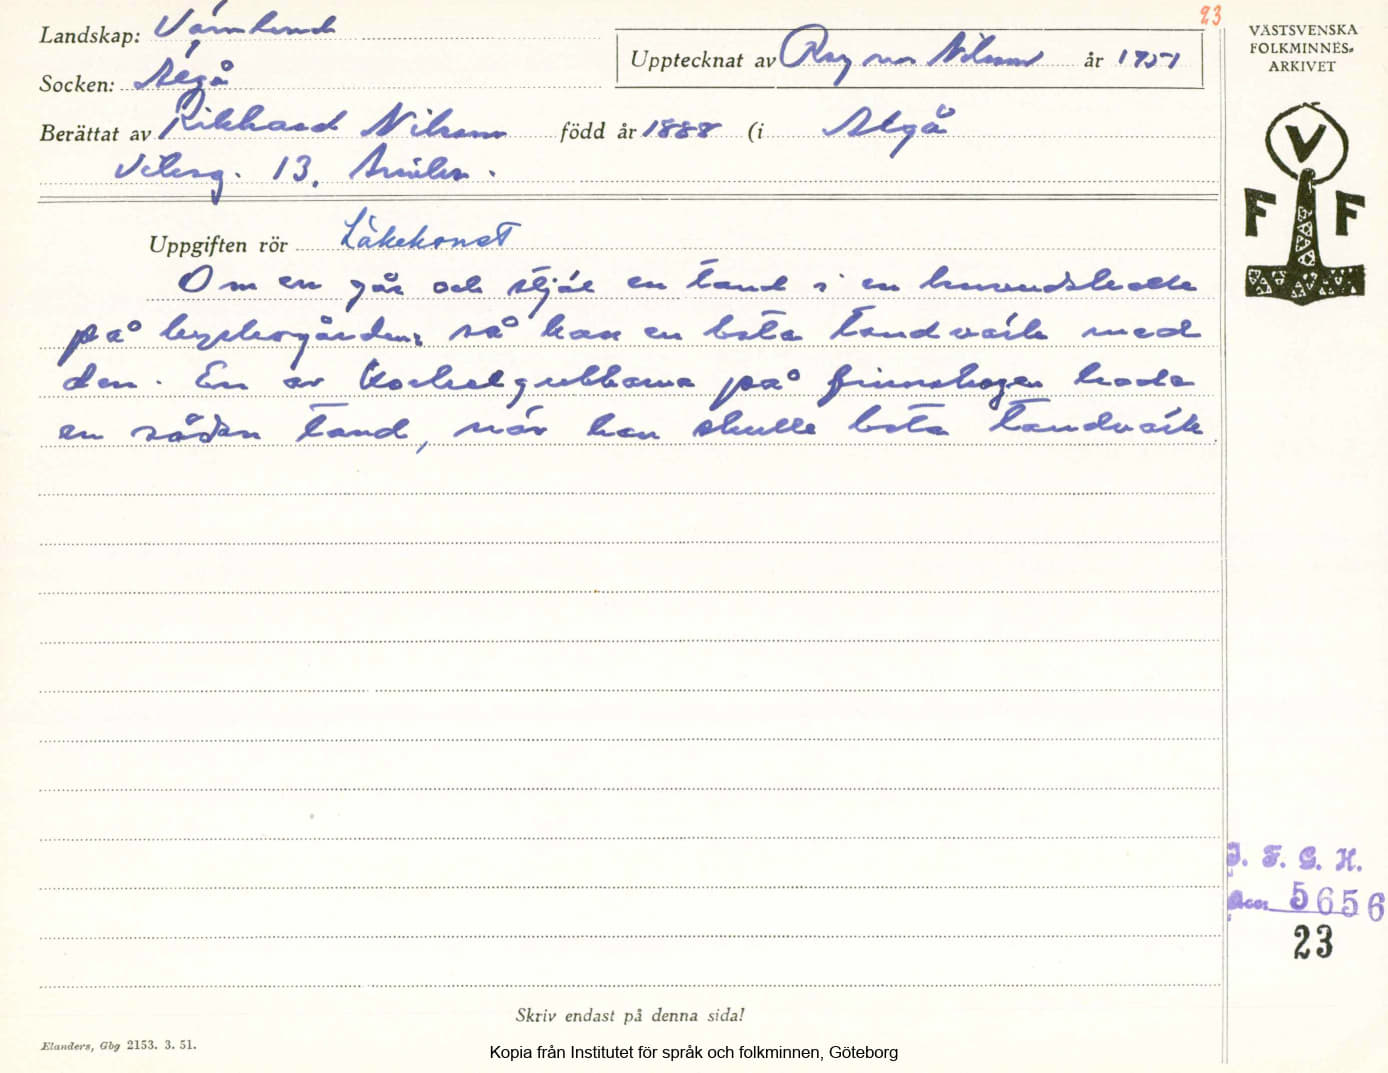 23
Landskap: Värmland
Upptecknat av Ragnar Nilsson år 1951
VÄSTSVENSKA
FOLKMINNES-
ARKIVET
Socken: Älgå
Berättat av Rikhard Nilsson född år 1888 (i Älgå
13,
V
F F
Uppgiften rör Läkekonst
Om en går och stjäl en tand i en huvudskalle
på kyrkogården, så kan en bota tandvärk med
den. En av trollgubbarna på finnskogen hade
en sådan tand, när han skulle bota tandvärk.
J. F. G. H.
Acc: 5656
23
Skriv endast på denna sida!
Elanders, Gbg 2153. 3. 51.
Kopia från Institutet för språk och folkminnen, Göteborg